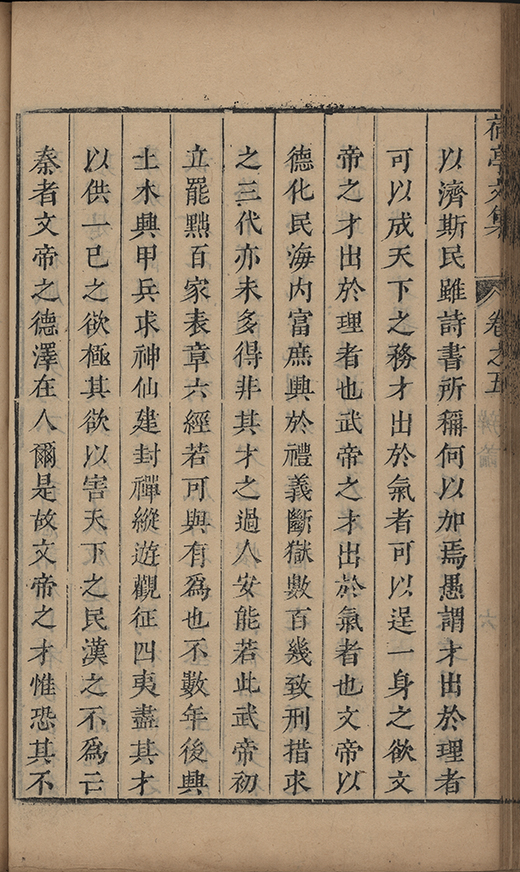 荷亭文集
卷之五
以濟斯民雖詩書所稱何以加焉愚謂才出於理者
可以成天下之務才出於氣者可以逞一身之欲文
帝之才出於理者也武帝之才出於氣者也文帝以
德化民海内富庶興於禮義斷獄數百幾致刑措求
之三代亦未多得非其才之過人安能若此武帝初
立罷黜百家表章六經若可與有爲也不數年後興
土木興甲兵求神仙建封禪縱遊觀征四夷盡其才
以供一己之欲極其欲以害天下之民漢之不爲亡
秦者文帝之德澤在人爾是故文帝之才惟恐其不